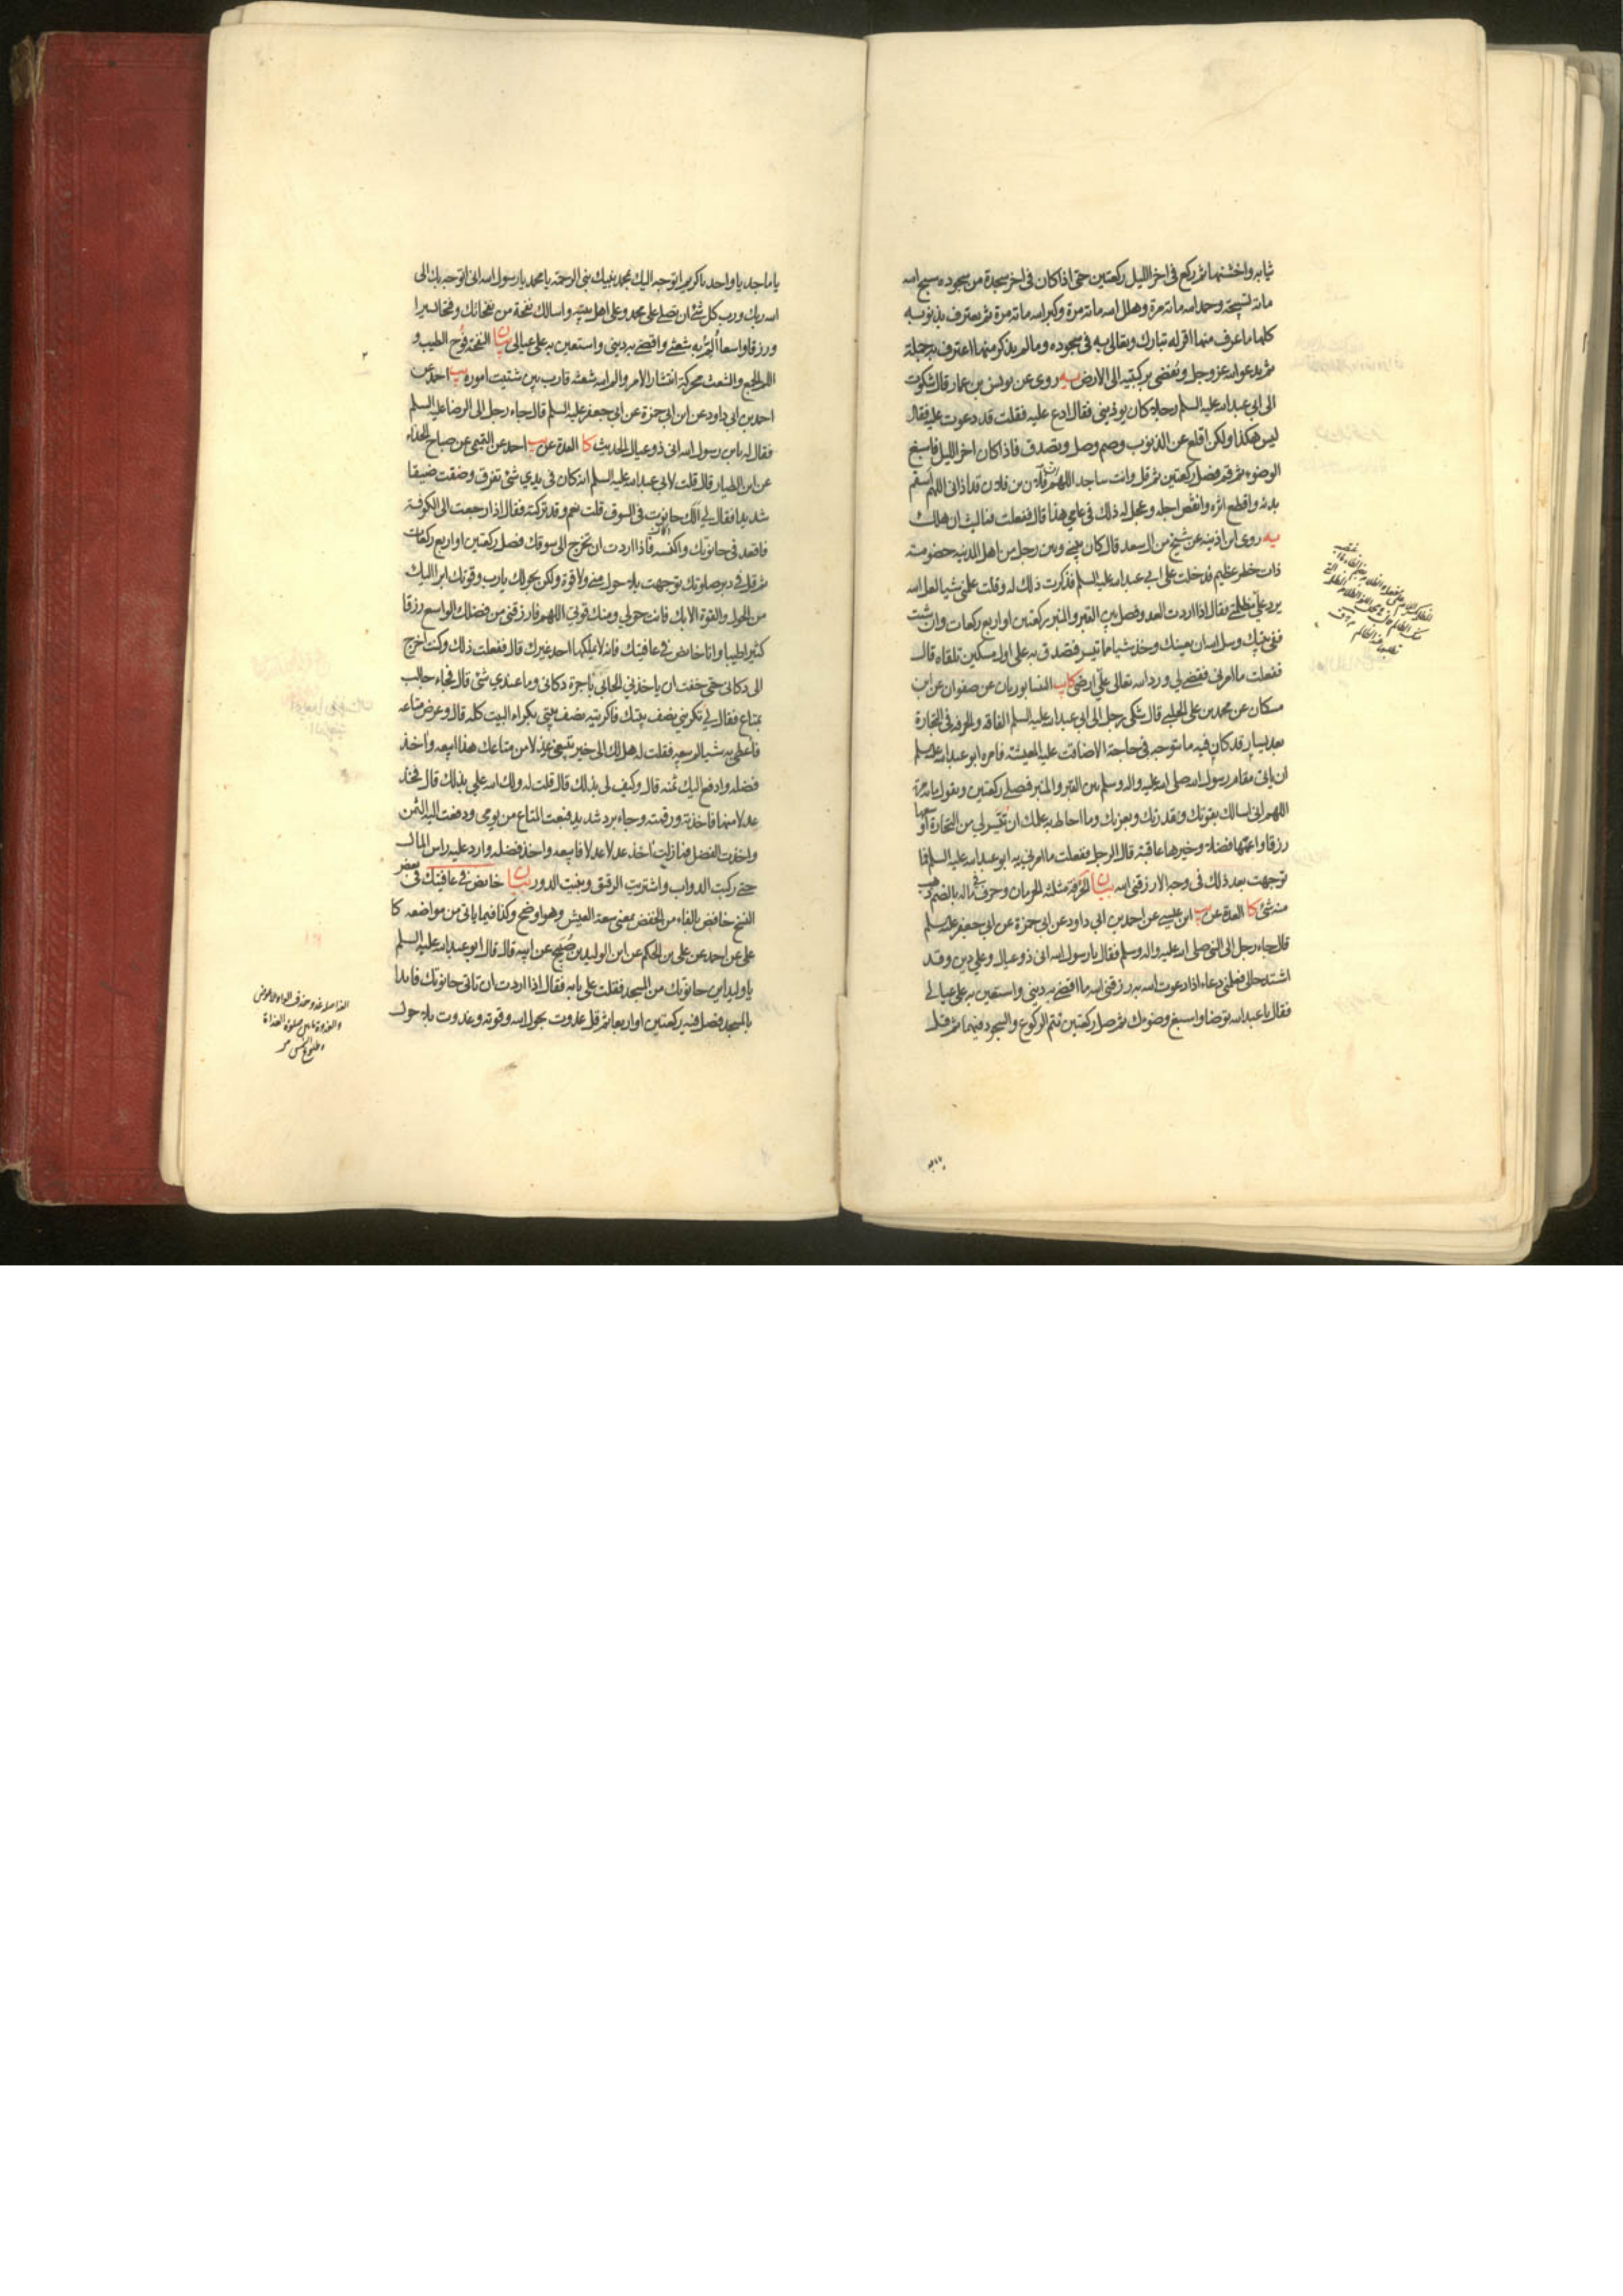 ثيابه واخشنها ثم ركع في اخر الليل ركعتين حتى اذا كان في اخر سجدة من سجوده سبح الله
مائة تسبيحة وحمد الله مائة مرة وهلل الله مائة مرة وكبر الله مائة مرة ثم يعترف بذنوبه
كلها ما عرف منها اقر له تبارك وتعالى به في سجوده وما لم يذكر منها اعترف به جملة
ثم يدعو الله عز وجل ويفضي بركبتيه الى الارض يه روى عن يونس بن عمار قال شكوت
الى ابي عبد الله عليه السلم رجلا كان يوذيني فقال ادع عليه فقلت قد دعوت عليه فقال
ليس هكذا ولكن اقلع عن الذنوب وصم وصل وتصدق فاذا كان اخر الليل فاسبغ
الوضوء ثم قم فصل ركعتين ثم قل وانت ساجد اللهم ان فلان بن فلان قد اذاني اللهم اسقم
بدنه واقطع اثره وانقص اجله وعجل له ذلك في عامي هذا قال ففعلت فما لبث ان هلك
يه روى ابن اذينه عن شيخ من ال سعد قال كان بيني وبين رجل من اهل المدينه خصومة
ذات خطر عظيم فدخلت على ابي عبد الله عليه السلم فذكرت ذلك له وقلت علمني شيا لعل الله
يرد على مظلمتي فقال اذا اردت العدو فصل بين القبر والمنبر ركعتين او اربع ركعات وان شئت
ففي بيتك وسل الله ان يعينك وخذ شيا مما تيسر فتصدق به على اول مسكين تلقاه قال
ففعلت ما امرني فقضى لي ورد الله تعالى علي ارضي كا يب النيسابوريان عن صفوان عن ابن
مسكان عن محمد بن علي الحلبي قال شكى رجل الى ابي عبد الله عليه السلم الفاقة والحرفة في التجارة
بعد يسار قد كان فيه ما يتوجه في حاجة الا ضاقت عليه المعيشة فامره ابو عبد الله عليه السلم
ان ياتي مقام رسول الله صلى الله عليه واله وسلم بين القبر والمنبر فيصلي ركعتين ويقول مائة مرة
اللهم اني اسالك بقوتك وقدرتك وبعزتك وما احاط به علمك ان تيسر لي من التجارة اوسعها
رزقا واعمها فضلا وخيرها عاقبة قال الرجل ففعلت ما امرني به ابو عبد الله عليه السلم فما
توجهت بعد ذلك في وجه الا رزقني الله بيان الحرفة مثلثة الحرمان وحرف في ماله بالضم ذهب
منه شئ كا العدة عن يب ابن عيسى عن احمد بن ابي داود عن ابي حمزة عن ابي جعفر عليه السلم
قال جاء رجل الى النبي صلى الله عليه واله وسلم فقال يا رسول الله اني ذو عيال وعلي دين وقد
اشتد حالي فعلمني دعاء اذا دعوت الله به رزقني الله ما اقضي به ديني واستعين به على عيالي
فقال يا عبد الله توضا واسبغ وضوءك ثم صل ركعتين تتم الركوع والسجود فيهما ثم قل
يا ماجد يا واحد يا كريم اتوجه اليك بمحمد نبيك نبي الرحمة يا محمد يا رسول الله اني اتوجه بك الى
الله ربك ورب كل شئ ان تصلي على محمد وعلى اهل بيته واسالك نفحة من نفحاتك وفتحا يسيرا
ورزقا واسعا الم به شعثي واقضي به ديني واستعين به على عيالي بيان النفحة فوح الطيب و
اللم الجمع والشعث محركة انتشار الامر ولم الله شعثه قارب بين شتيت اموره يب احمد عن
احمد بن ابي داود عن ابن ابي حمزة عن ابي جعفر عليه السلم قال جاء رجل الى الرضا عليه السلم
فقال له يا بن رسول الله اني ذو عيال الحديث كا العدة عن يب احمد عن التميمي عن صباح الحذاء
عن ابن الطيار قال قلت لابي عبد الله عليه السلم انه كان في يدي شئ تفرق وضقت ضيقا
شديدا فقال لي الك حانوت في السوق قلت نعم وقد تركته فقال اذا رجعت الى الكوفة
فاقعد في حانوتك واكنسه فاذا اردت ان تخرج الى سوقك فصل ركعتين او اربع ركعات
ثم قل في دبر صلوتك توجهت بلا حول مني ولا قوة ولكن بحولك يا رب وقوتك ابرا اليك
من الحول والقوة الا بك فانت حولي ومنك قوتي اللهم فارزقني من فضلك الواسع رزقا
كثيرا طيبا وانا خافض في عافيتك فانه لا يملكها احد غيرك قال ففعلت ذلك وكنت اخرج
الى دكاني حتى خفت ان ياخذني الجابي باجرة دكاني وما عندي شئ قال فجاء جالب
بمتاع فقال لي تكريني نصف بيتك فاكريته نصف بيتي بكراء البيت كله قال وعرض متاعه
فاعطى به شيا لم يبعه فقلت له هل لك الى خير تبيعني عدلا من متاعك هذا ابيعه واخذ
فضله وادفع اليك ثمنه قال وكيف لي بذلك قال قلت له ولك الله علي بذلك قال فخذ
عدلا منها فاخذته ورقمته وجاء برد شديد فبعت المتاع من يومي ودفعت اليه الثمن
واخذت الفضل فما زلت اخذ عدلا عدلا فابيعه واخذ فضله وارد عليه راس المال
حتى ركبت الدواب واشتريت الرقيق وبنيت الدور بيان خافض في عافيتك في بعض
النسخ خافض بالفاء من الخفض بمعنى سعة العيش وهو اوضح وكذا فيما ياتي من مواضعه كا
علي عن احمد عن علي بن الحكم عن ابن الوليد بن صبيح عن ابيه قال قال ابو عبد الله عليه السلم
يا وليد اين حانوتك من المسجد فقلت على بابه فقال اذا اردت ان تاتي حانوتك فابدا
بالمسجد فصل فيه ركعتين او اربعا ثم قل غدوت بحول الله وقوته وغدوت بلا حول
الغد اصله غدو حذف الواو بلا عوض
والغدوة ما بين صلوة الغداة
وطلوع الشمس